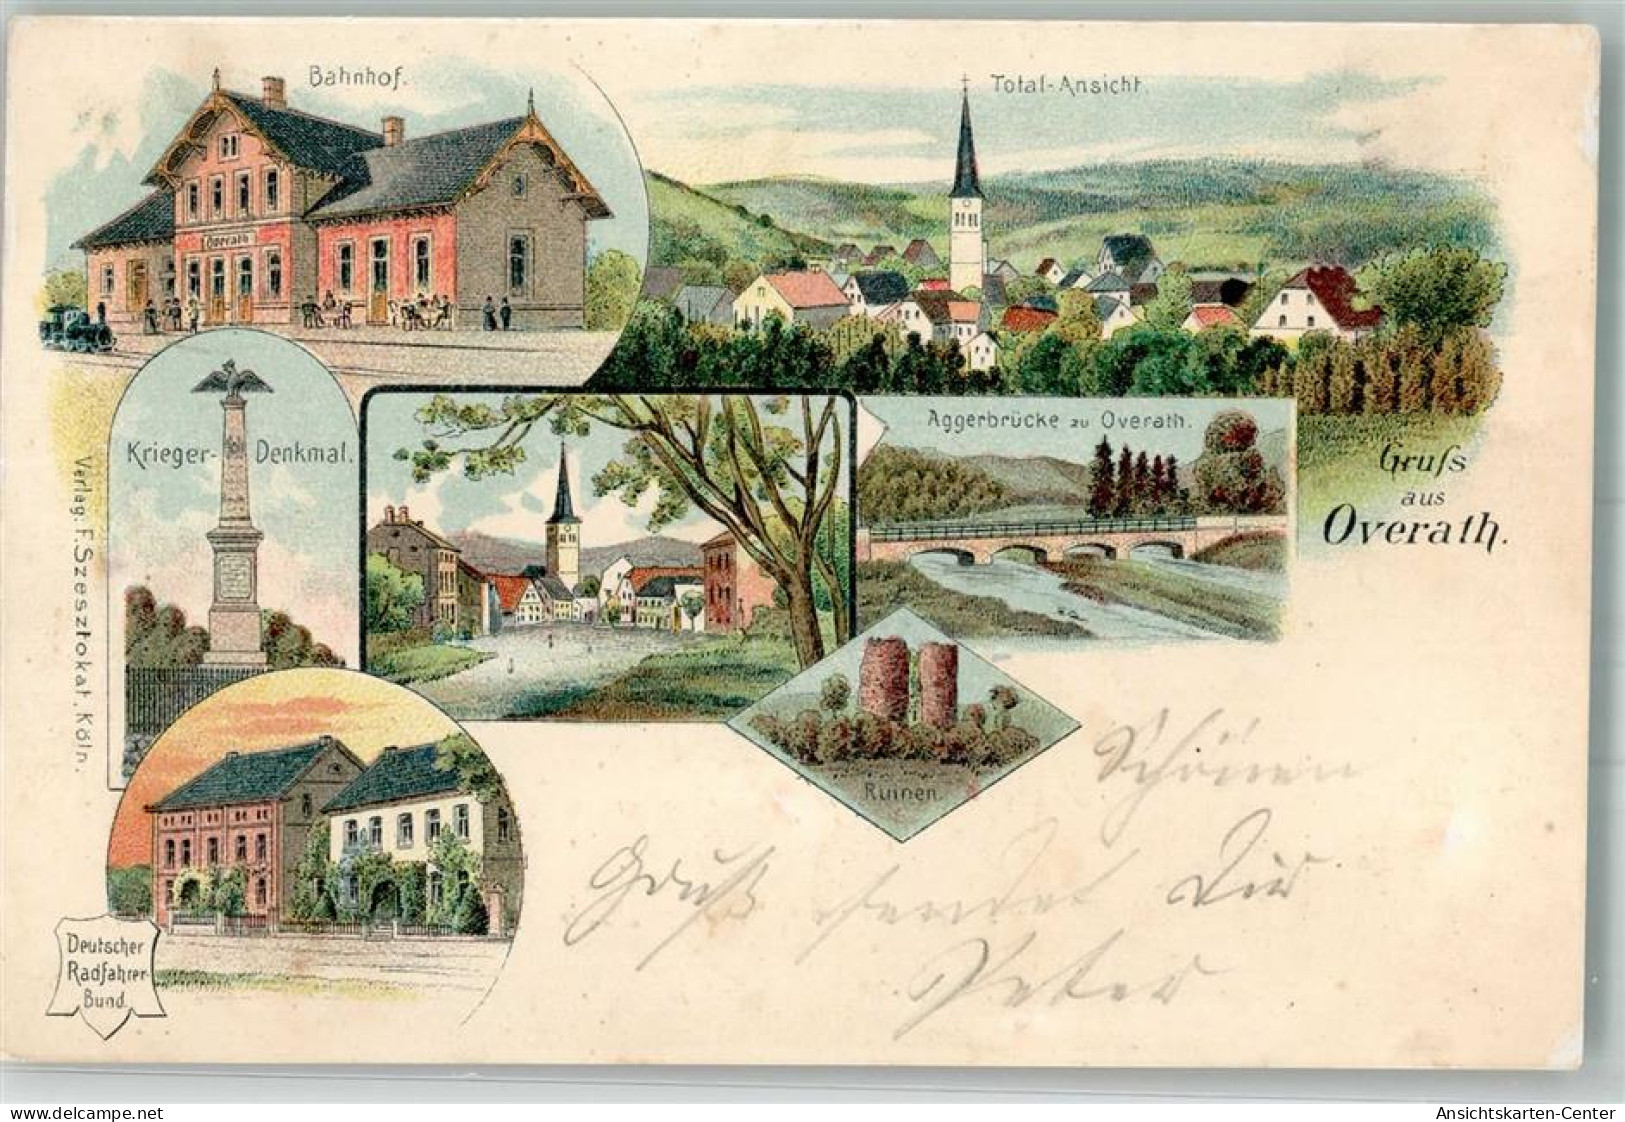 Bahnhof.
Total-Ansicht.
Overath
Krieger-Denkmal.
Aggerbrücke zu Overath.
Gruſs
aus
Overath.
Verlag: F. Szesztokat, Köln.
Ruinen.
Deutscher
Radfahrer-
Bund.
Schönen
Gruß sendet Dir
Peter
delcampe.net
Ansichtskarten-Center